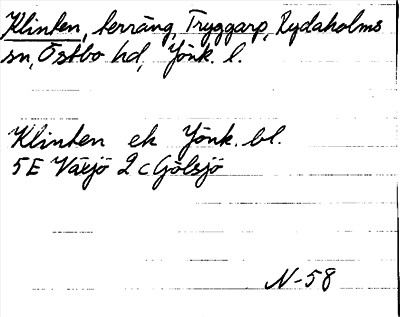 Klinten, terräng, Tryggarp, Rydaholms
sn, Östbo hd, Jönk. l.
Klinten ek Jönk. bl.
5E Växjö 2 c Gölsjö
N-58